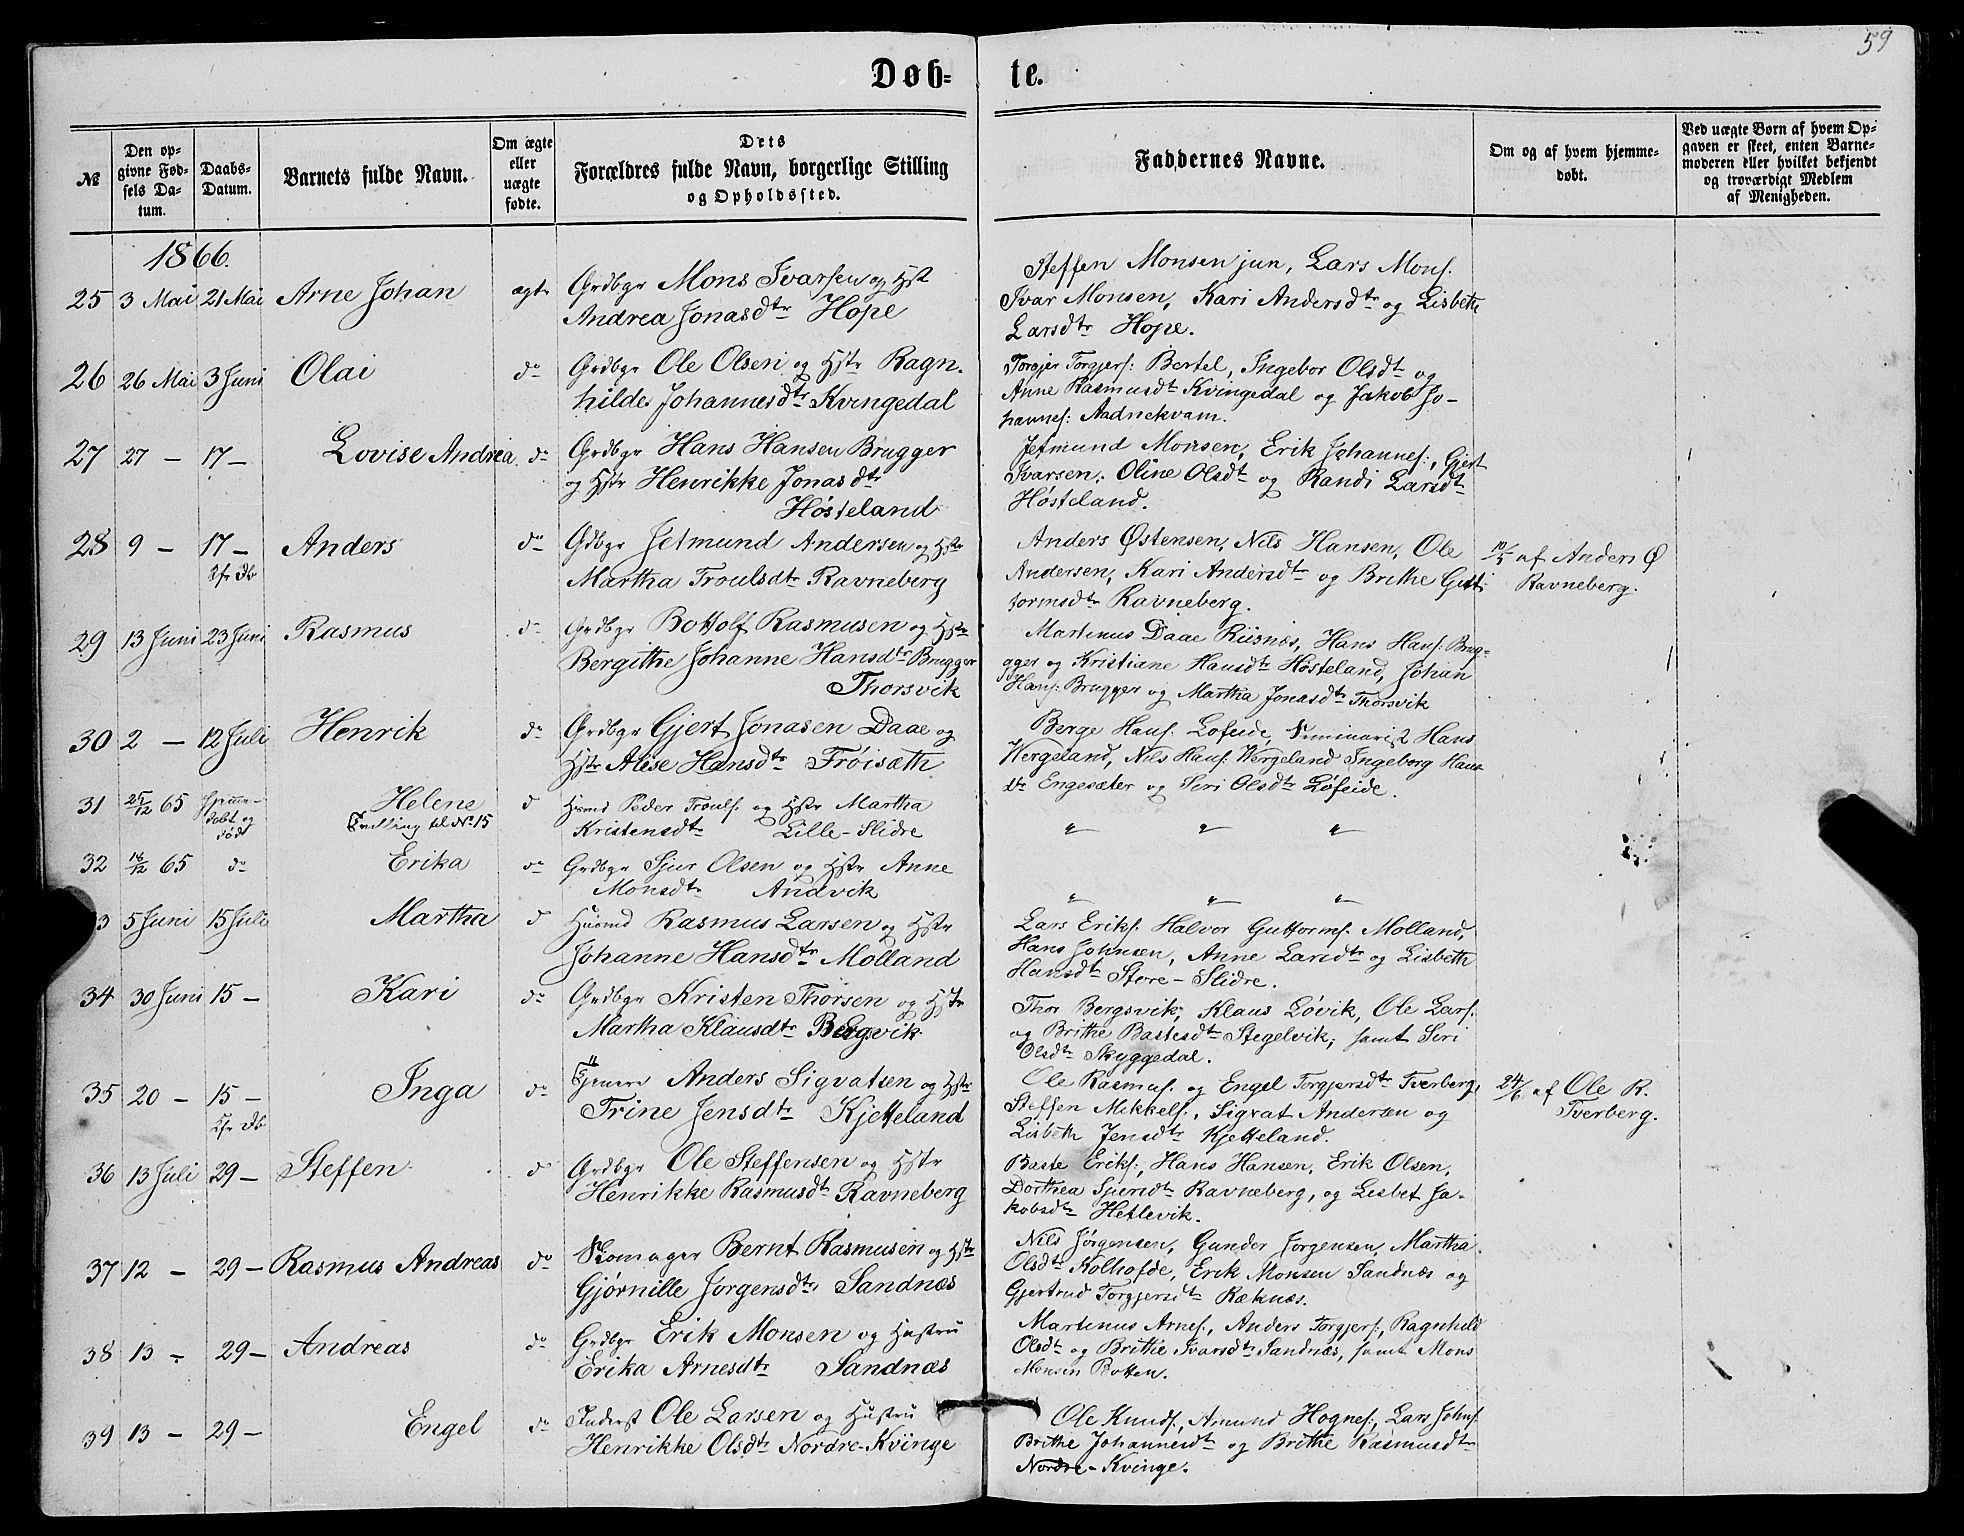 59
Døb= te.
№
Den op=
givne Fød=
sels Da=
tum.
Daabs=
Datum.
Barnets fulde Navn.
Om ægte
eller
uægte
fødte.
Dets
Forældres fulde Navn, borgerlige Stilling
og Opholdssted.
Faddernes Navne.
Om og af hvem hjemme=
døbt.
Ved uægte Børn af hvem Op=
gaven er skeet, enten Barne=
moderen eller hvilket bekjendt
og troværdigt Medlem
af Menigheden.
1866.
25 3 Mai 21 Mai Arne Johan ægte Grdbgr Mons Ivarsen og Hst
Andrea Jonasdtr Hope
Steffen Monsen jun, Lars Mons:
Ivar Monsen, Kari Andersdtr og Lisbeth
Larsdtr Hope.
26 26 Mai 3 Juni Olai do Grdbgr Ole Olsen og Hstr Ragn-
hilde Johannesdtr Kvingedal
Torgjer Torgjers: Bertel, Ingebor Olsdt og
Anne Rasmusdt Kvingedal og Jakob Jo-
hannes: Aadnekvam.
27 27 - 17 - Lovise Andrea do Grdbgr Hans Hansen Brugger
og Hstr Henrikke Jonasdtr
Høsteland
Jetmund Monsen, Erik Johannes:, Gjert
Ivarsen, Oline Olsdt og Randi Larsdtr
Høsteland.
28 9 - 17 - Anders do Gdbgr Jetmund Andersen og Hstr
Martha Troulsdtr Ravneberg
Anders Østensen, Nils Hansen, Ole
Andersen, Kari Andersdtr og Brithe Gutt-
formsdtr Ravneberg.
af Anders Ø
Ravneberg.
29 13 Juni 23 Juni Rasmus do Grdbgr Bottolf Rasmusen og Hstr
Bergithe Johanne Hansdtr Brugger
Thorsvik
Martinus Daae Risnæs, Hans Hans: Brug-
ger og Kristiane Hansdtr Høsteland, Johan
Hans: Brugger og Martha Jonasdtr Thorsvik
30 2 - 12 Juli Henrik do Grdbgr Gjert Jonasen Daae og
Hstr Alese Hansdtr Frøisæth
Berge Hans: Lofeide, Seminarist Hans
Wergeland, Nils Hans: Wergeland Ingeborg Hans
dtr Engesæter og Siri Olsdtr Løfeide.
31 25/12 65 Hjemme-
døbt og
død Helene
Tvilling til No 15 d Husmd Peder Trouls: og Hstr Martha
Kristensdtr Lille-Slidre
" " "
32 16/12 65 do Erika do Grdbgr Sjur Olsen og Hstr Anne
Monsdtr Andvik
" " "
3 5 Juni 15 Juli Martha d Husmd Rasmus Larsen og Hstr
Johanne Hansdtr Molland
Lars Eriks: Halvor Guttorms: Molland,
Hans Johnsen, Anne Larsdtr og Lisbeth
Hansdtr Store-Slidre.
34 30 Juni 15 - Kari do Grdbgr Kristen Thorsen og Hstr
Martha Klausdtr Bergsvik
Thor Bergsvik, Klaus Løvik, Ole Lars:
og Brithe Bastesdtr Stegelvik, samt Siri
Olsdtr Skyggedal.
35 20 - 15 - Inga do Anders Sigvatsen og Hstr
Trine Jensdtr Kjetteland
Ole Rasmus: og Engel Torgjersdtr Tverberg,
Steffen Mikkels:, Sigvat Andersen og
Lisbeth Jensdtr Kjetteland.
24/6 af Ole R.
Tverberg.
36 13 Juli 29 - Steffen d Grdbgr Ole Steffensen og Hstr
Henrikke Rasmusdtr Ravneberg
Baste Eriks:, Hans Hansen, Erik Olsen,
Dorthea Sjursdtr Ravneberg, og Lisbet Ja-
kobsdtr Hetlevik.
37 12 - 29 - Rasmus Andreas do Skomager Bernt Rasmusen og Hstr
Gjørnille Jørgensdtr Sandnæs
Nils Jørgensen, Gunder Jørgensen, Martha
Olsdtr Kolhofde, Erik Monsen Sandnæs og
Gjertrud Torgjersdtr Ræknæs.
38 13 - 29 - Andreas do Grdbgr Erik Monsen og Hustru
Erika Arnesdtr Sandnæs
Martinus Arnes:, Anders Torgjers:, Ragnhild
Olsdtr og Brithe Ivarsdtr Sandnæs, samt Mons
Monsen Botten.
39 13 - 29 - Engel do Inderst Ole Larsen og Hustru
Henrikke Olsdtr Nordre-Kvinge
Ole Knuds:, Amund Hognes:, Lars Johns:
Brithe Johannesdtr og Brithe Rasmusdtr
Nordre-Kvinge.